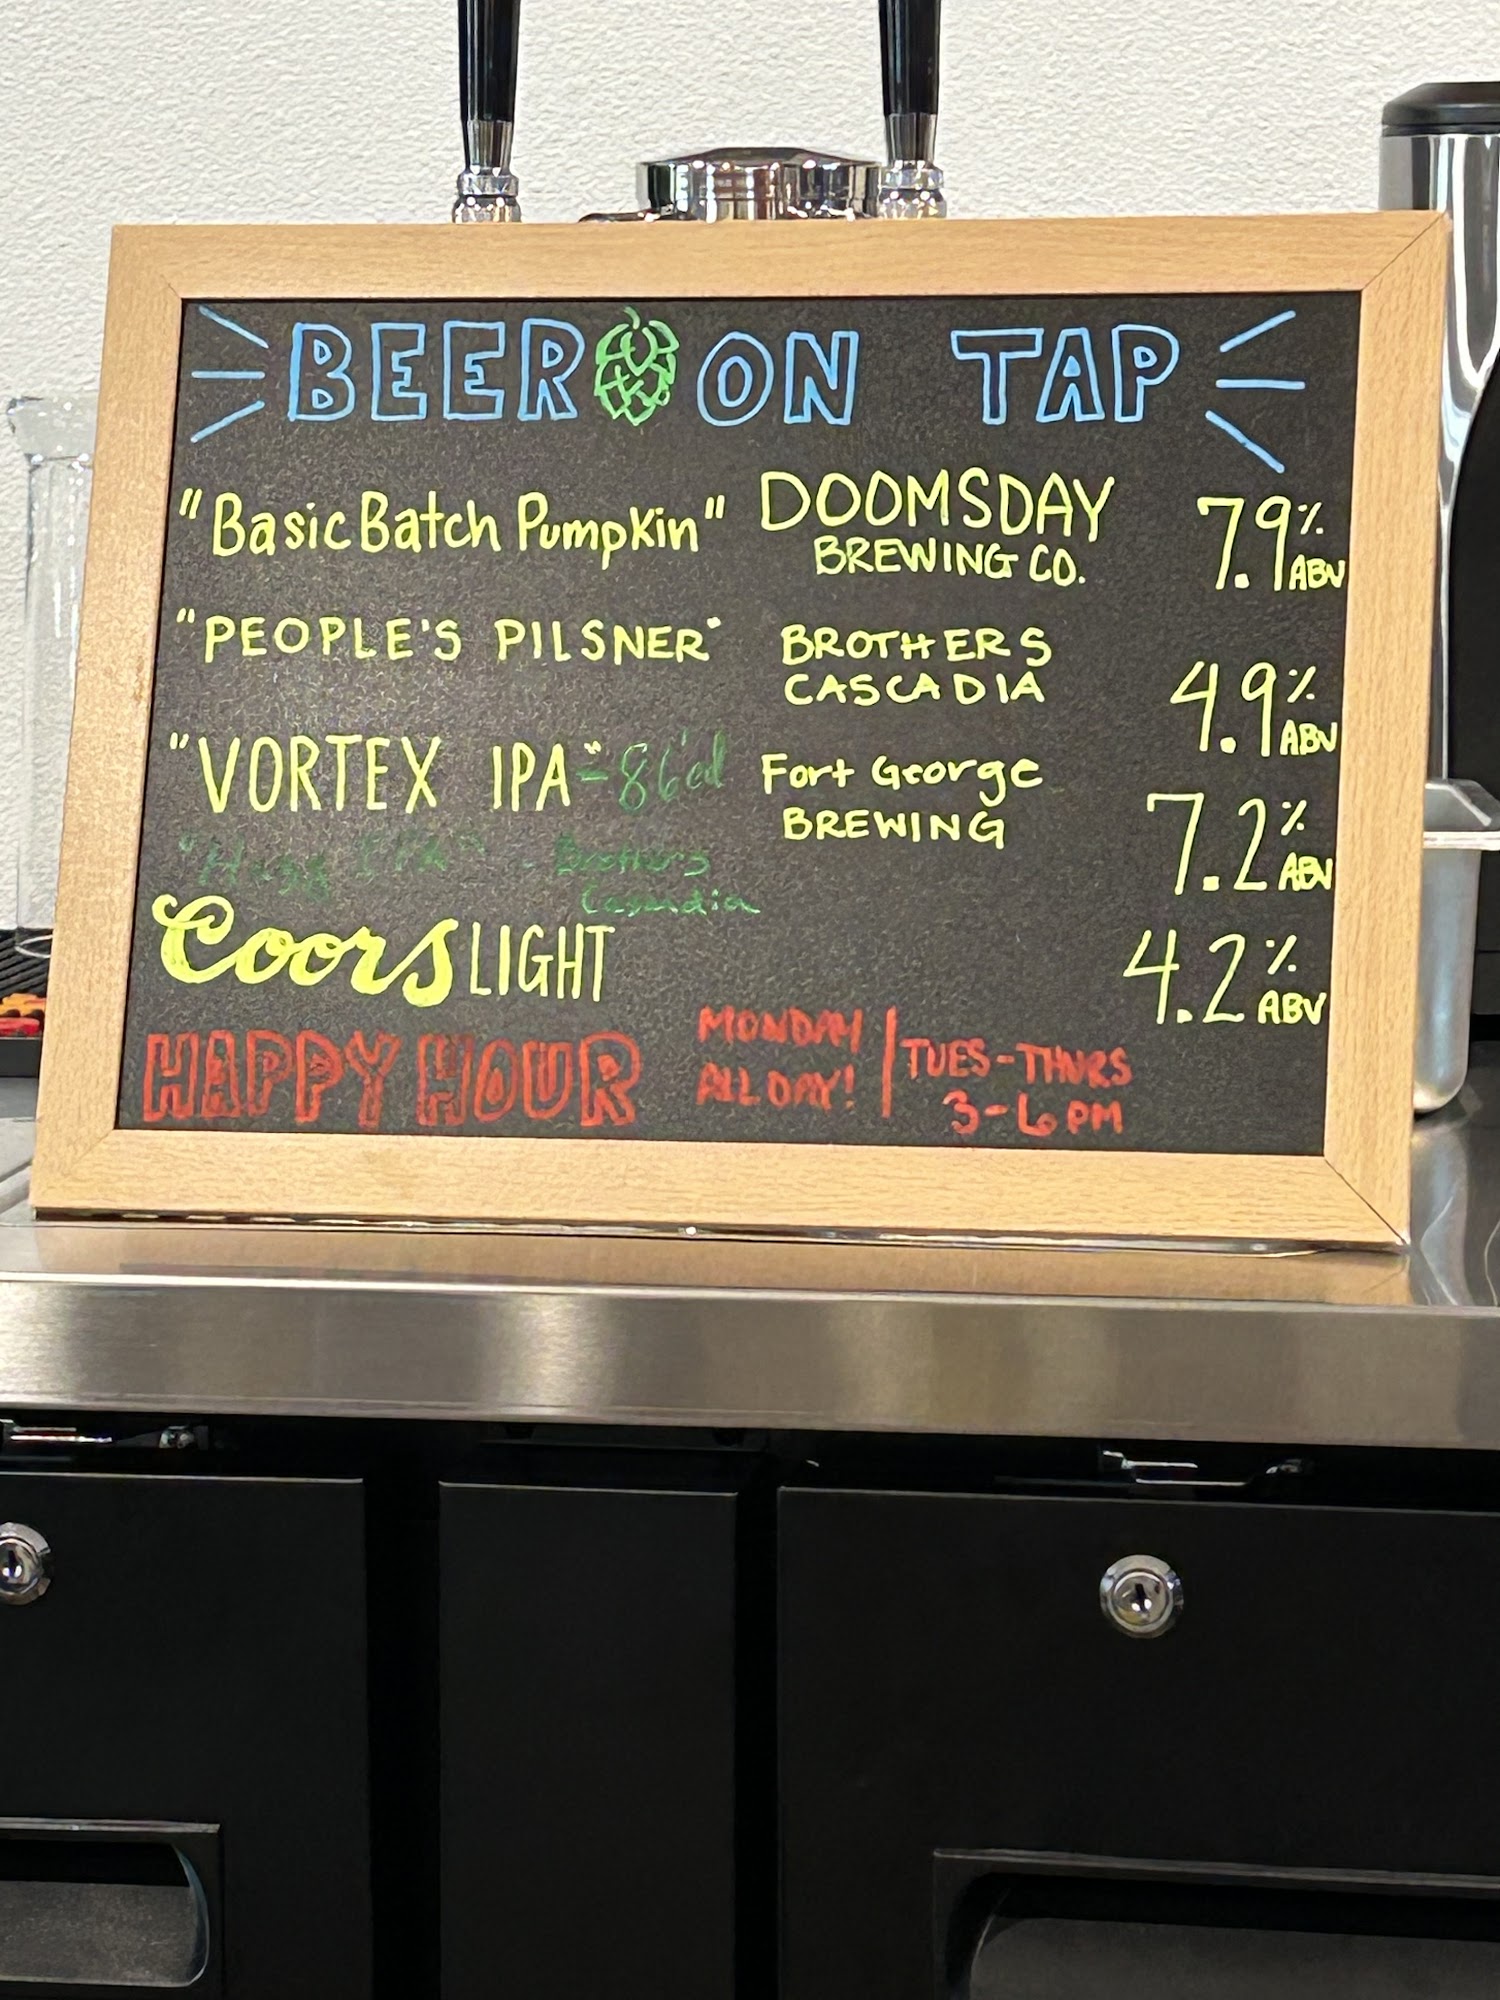 BEER ON TAP
"Basic Batch Pumpkin" DOOMSDAY BREWING CO. 7.9% ABV
"PEOPLE'S PILSNER" BROTHERS CASCADIA 4.9% ABV
"VORTEX IPA" - 86'd Fort George BREWING 7.2% ABV
IPA" - Brothers
Cascadia
Coors LIGHT 4.2% ABV
HAPPY HOUR MONDAY ALL DAY! | TUES-THURS 3-6PM